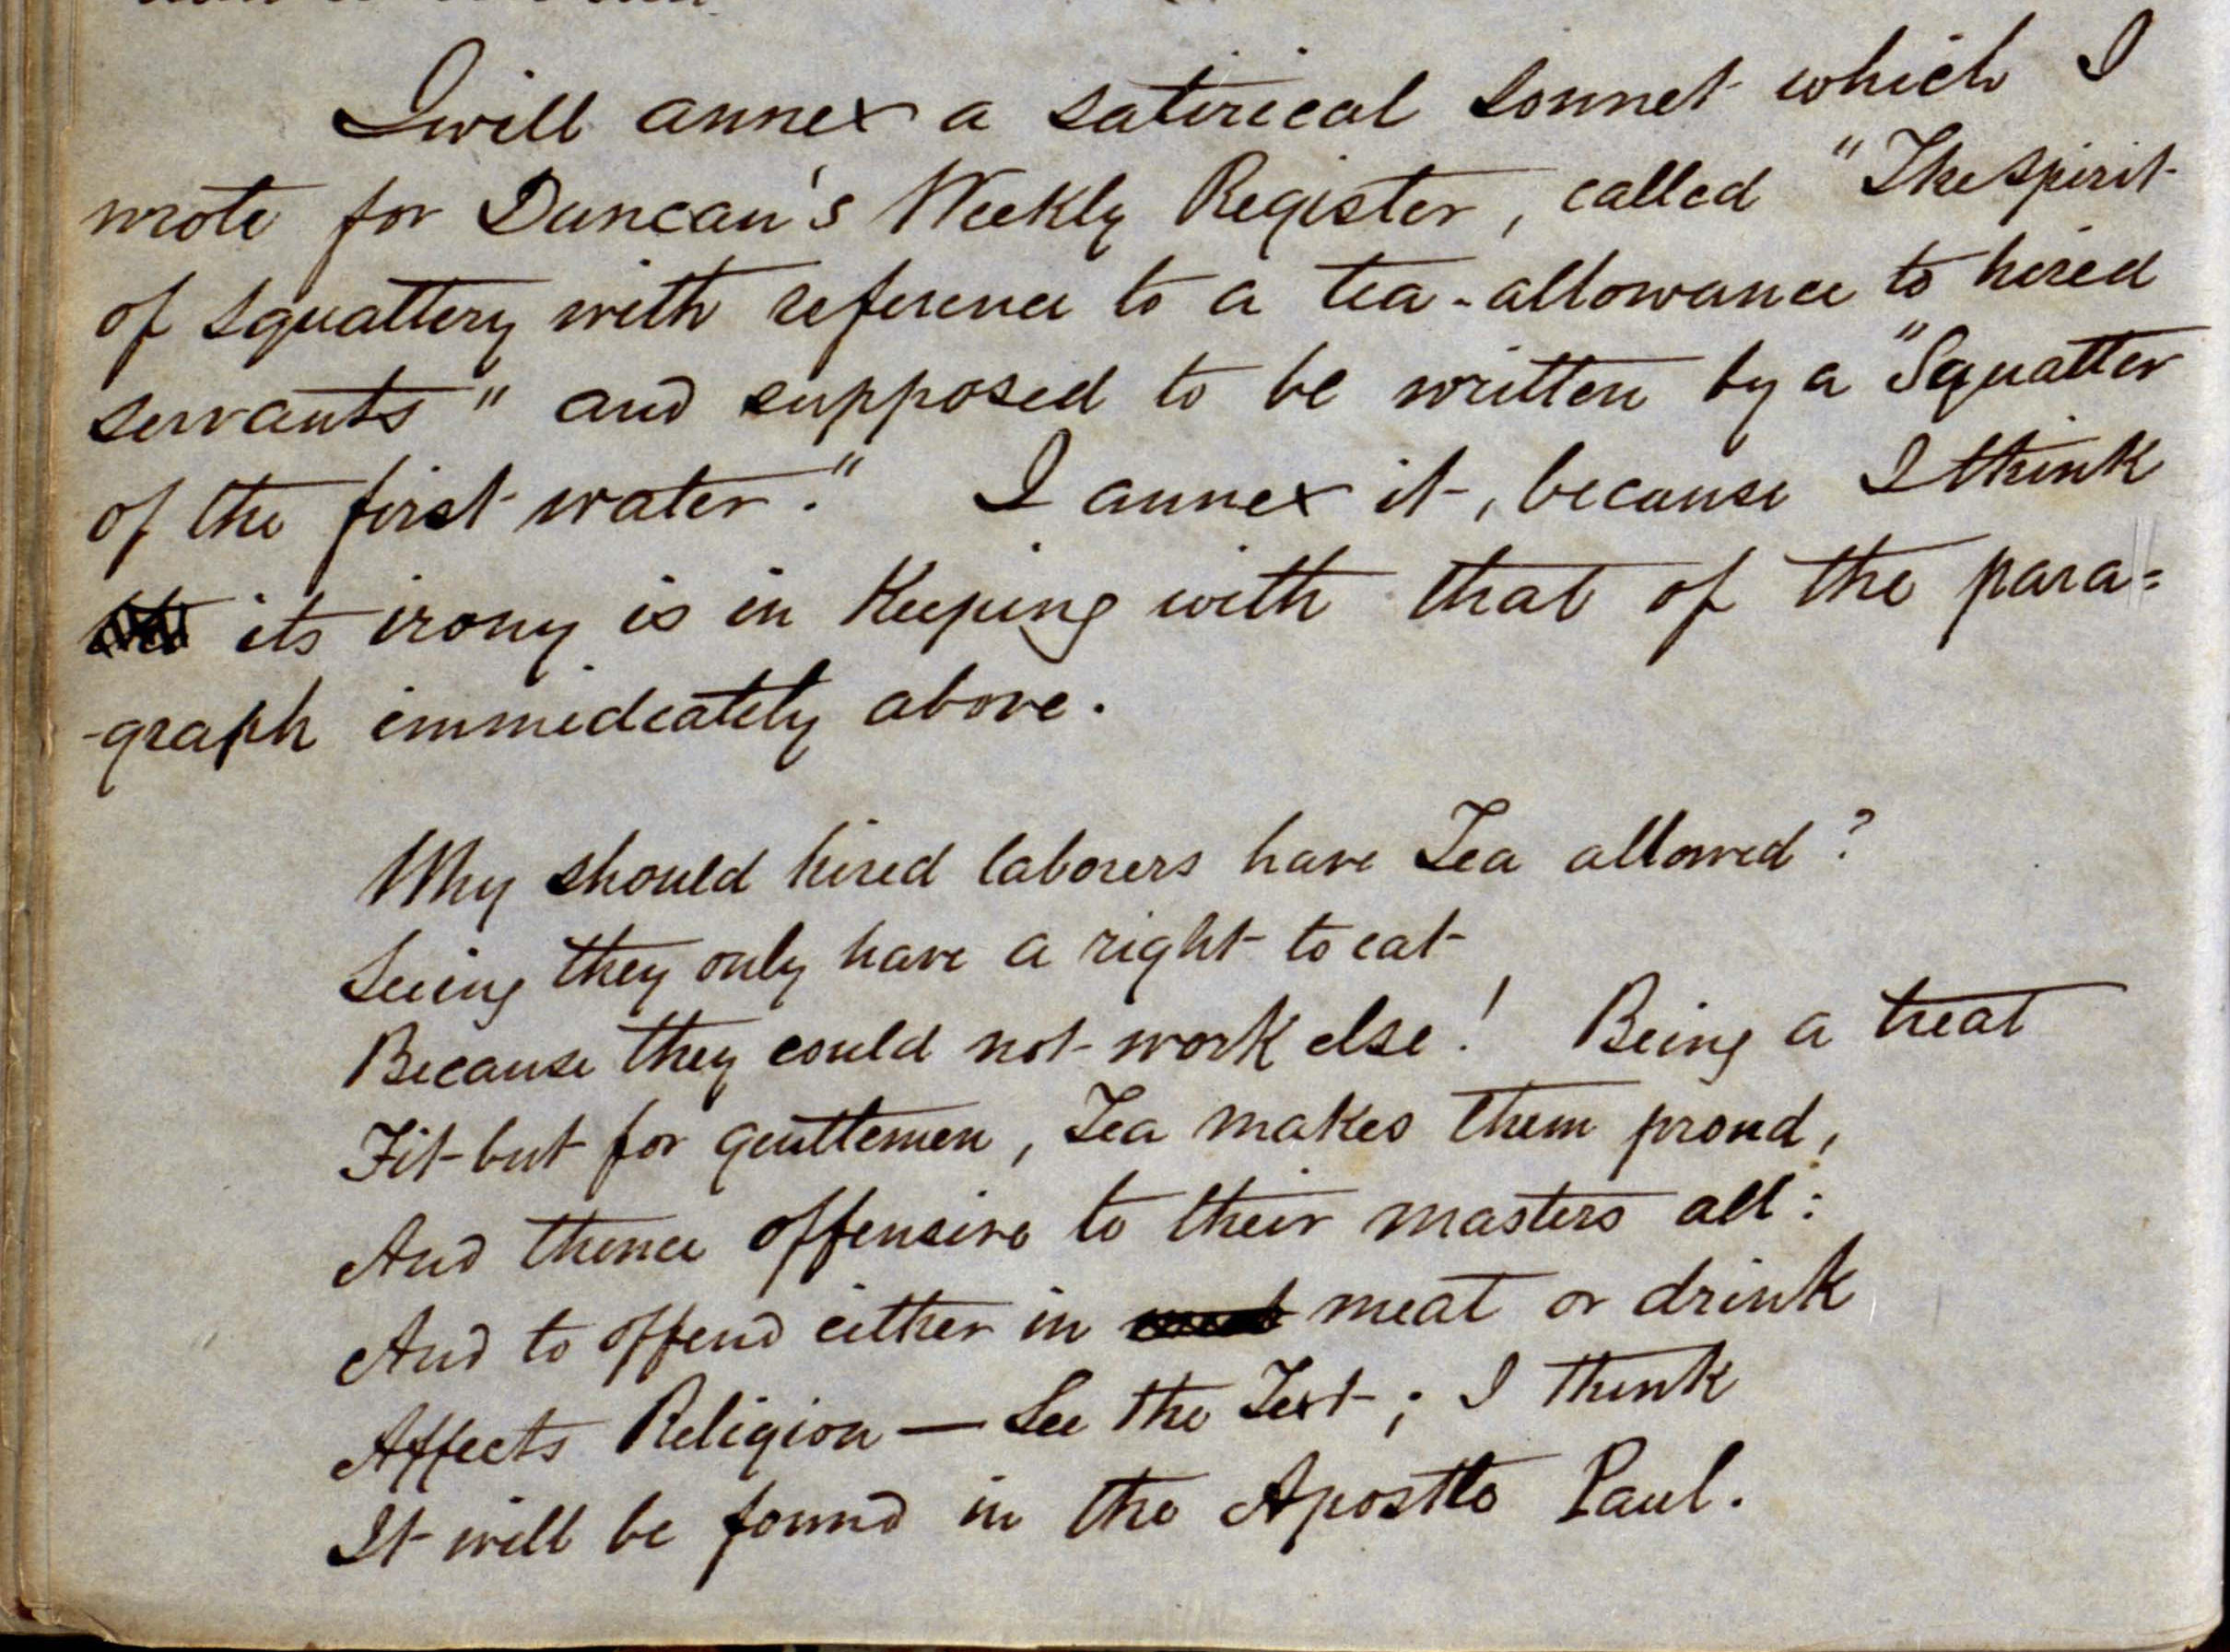 I will annex a satirical sonnet which I
wrote for Duncan's Weekly Register, called "The spirit
of squattery with reference to a tea-allowance to hired
servants" and supposed to be written by a "Squatter
of the first water." I annex it, because I think
its irony is in Keeping with that of the para=
-graph immediately above.
Why should hired laborers have Tea allowed?
Seeing they only have a right to eat
Because they could not work else! Being a treat
Fit but for gentlemen, Tea makes them proud,
And thence offensive to their masters all:
And to offend either in meat or drink
Affects Religion — See the Text; I think
It will be found in the Apostle Paul.